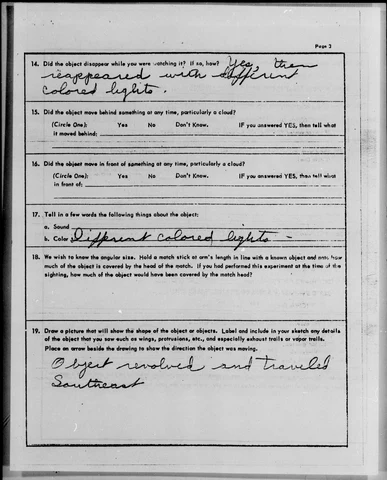 Page 3
14. Did the object disappear while you were watching it? If so, how? Yes, then
reappeared with different
colored lights.
15. Did the object move behind something at any time, particularly a cloud?
(Circle One): Yes No Don't Know. IF you answered YES, then tell what
it moved behind:
16. Did the object move in front of something at any time, particularly a cloud?
(Circle One): Yes No Don't Know. IF you answered YES, then tell what
in front of:
17. Tell in a few words the following things about the object:
a. Sound
b. Color Different colored lights -
18. We wish to know the angular size. Hold a match stick at arm's length in line with a known object and note how
much of the object is covered by the head of the match. If you had performed this experiment at the time of the
sighting, how much of the object would have been covered by the match head?
19. Draw a picture that will show the shape of the object or objects. Label and include in your sketch any details
of the object that you saw such as wings, protrusions, etc., and especially exhaust trails or vapor trails.
Place an arrow beside the drawing to show the direction the object was moving.
Object revolved and traveled
Southeast